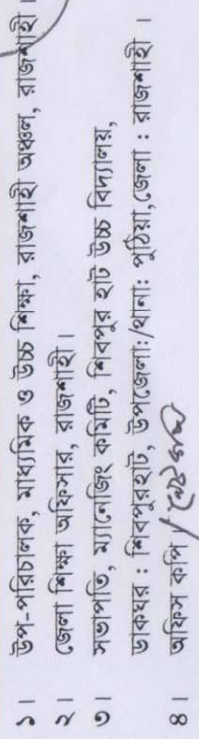 ১। উপ-পরিচালক, মাধ্যমিক ও উচ্চ শিক্ষা, রাজশাহী অঞ্চল, রাজশাহী।
২। জেলা শিক্ষা অফিসার, রাজশাহী।
৩। সভাপতি, ম্যানেজিং কমিটি, শিবপুর হাট উচ্চ বিদ্যালয়,
ডাকঘর : শিবপুরহাট, উপজেলা:/থানা: পুঠিয়া,জেলা : রাজশাহী ।
৪। অফিস কপি